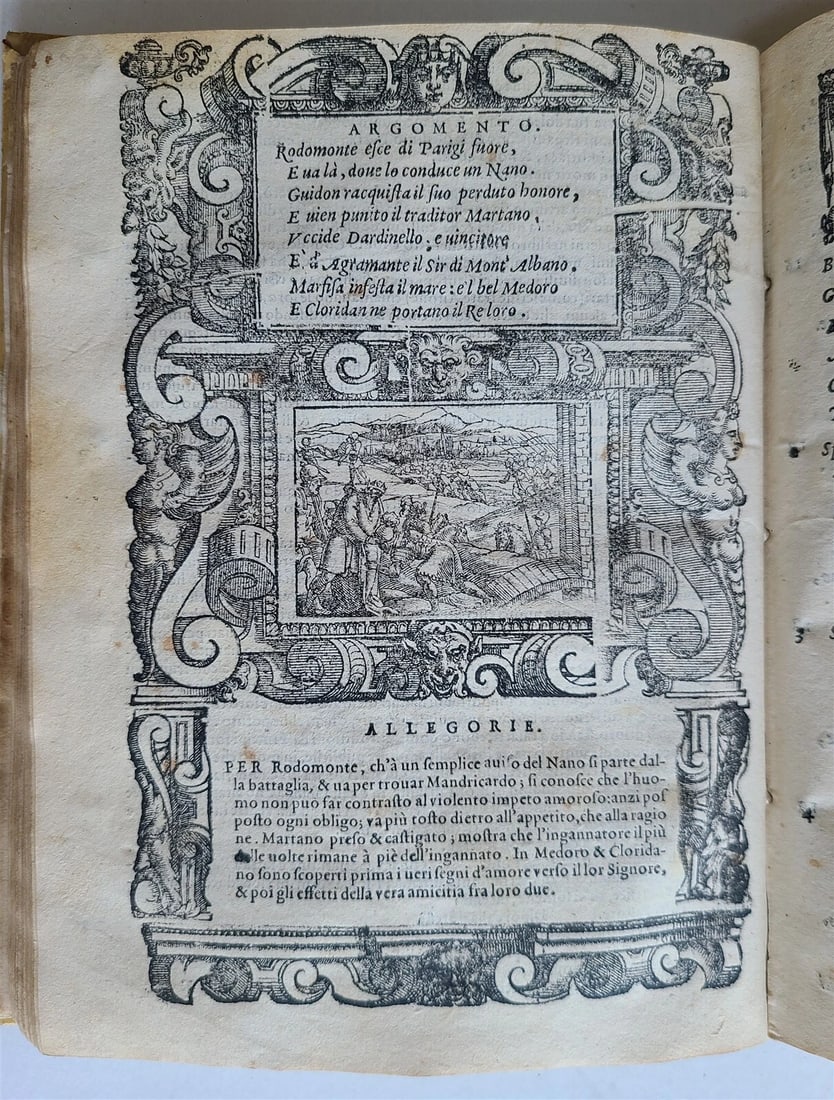 ARGOMENTO.
Rodomonte esce di Parigi fuore,
E ua là, doue lo conduce un Nano.
Guidon racquista il suo perduto honore,
E uien punito il traditor Martano,
Vccide Dardinello, e uincitore
E' d'Agramante il Sir di Mont' Albano.
Marfisa infesta il mare: e'l bel Medoro
E Cloridan ne portano il Re loro.
ALLEGORIE.
PER Rodomonte, ch'à un semplice auiso del Nano si parte dal-
la battaglia, & ua per trouar Mandricardo; si conosce che l'huo-
mo non può far contrasto al violento impeto amoroso: anzi pos
posto ogni obligo; va più tosto dietro all'appetito, che alla ragio
ne. Martano preso & castigato; mostra che l'ingannatore il più
delle uolte rimane à piè dell'ingannato. In Medoro & Clorida-
no sono scoperti prima i ueri segni d'amore verso il lor Signore,
& poi gli effetti della vera amicitia fra loro due.
3
4